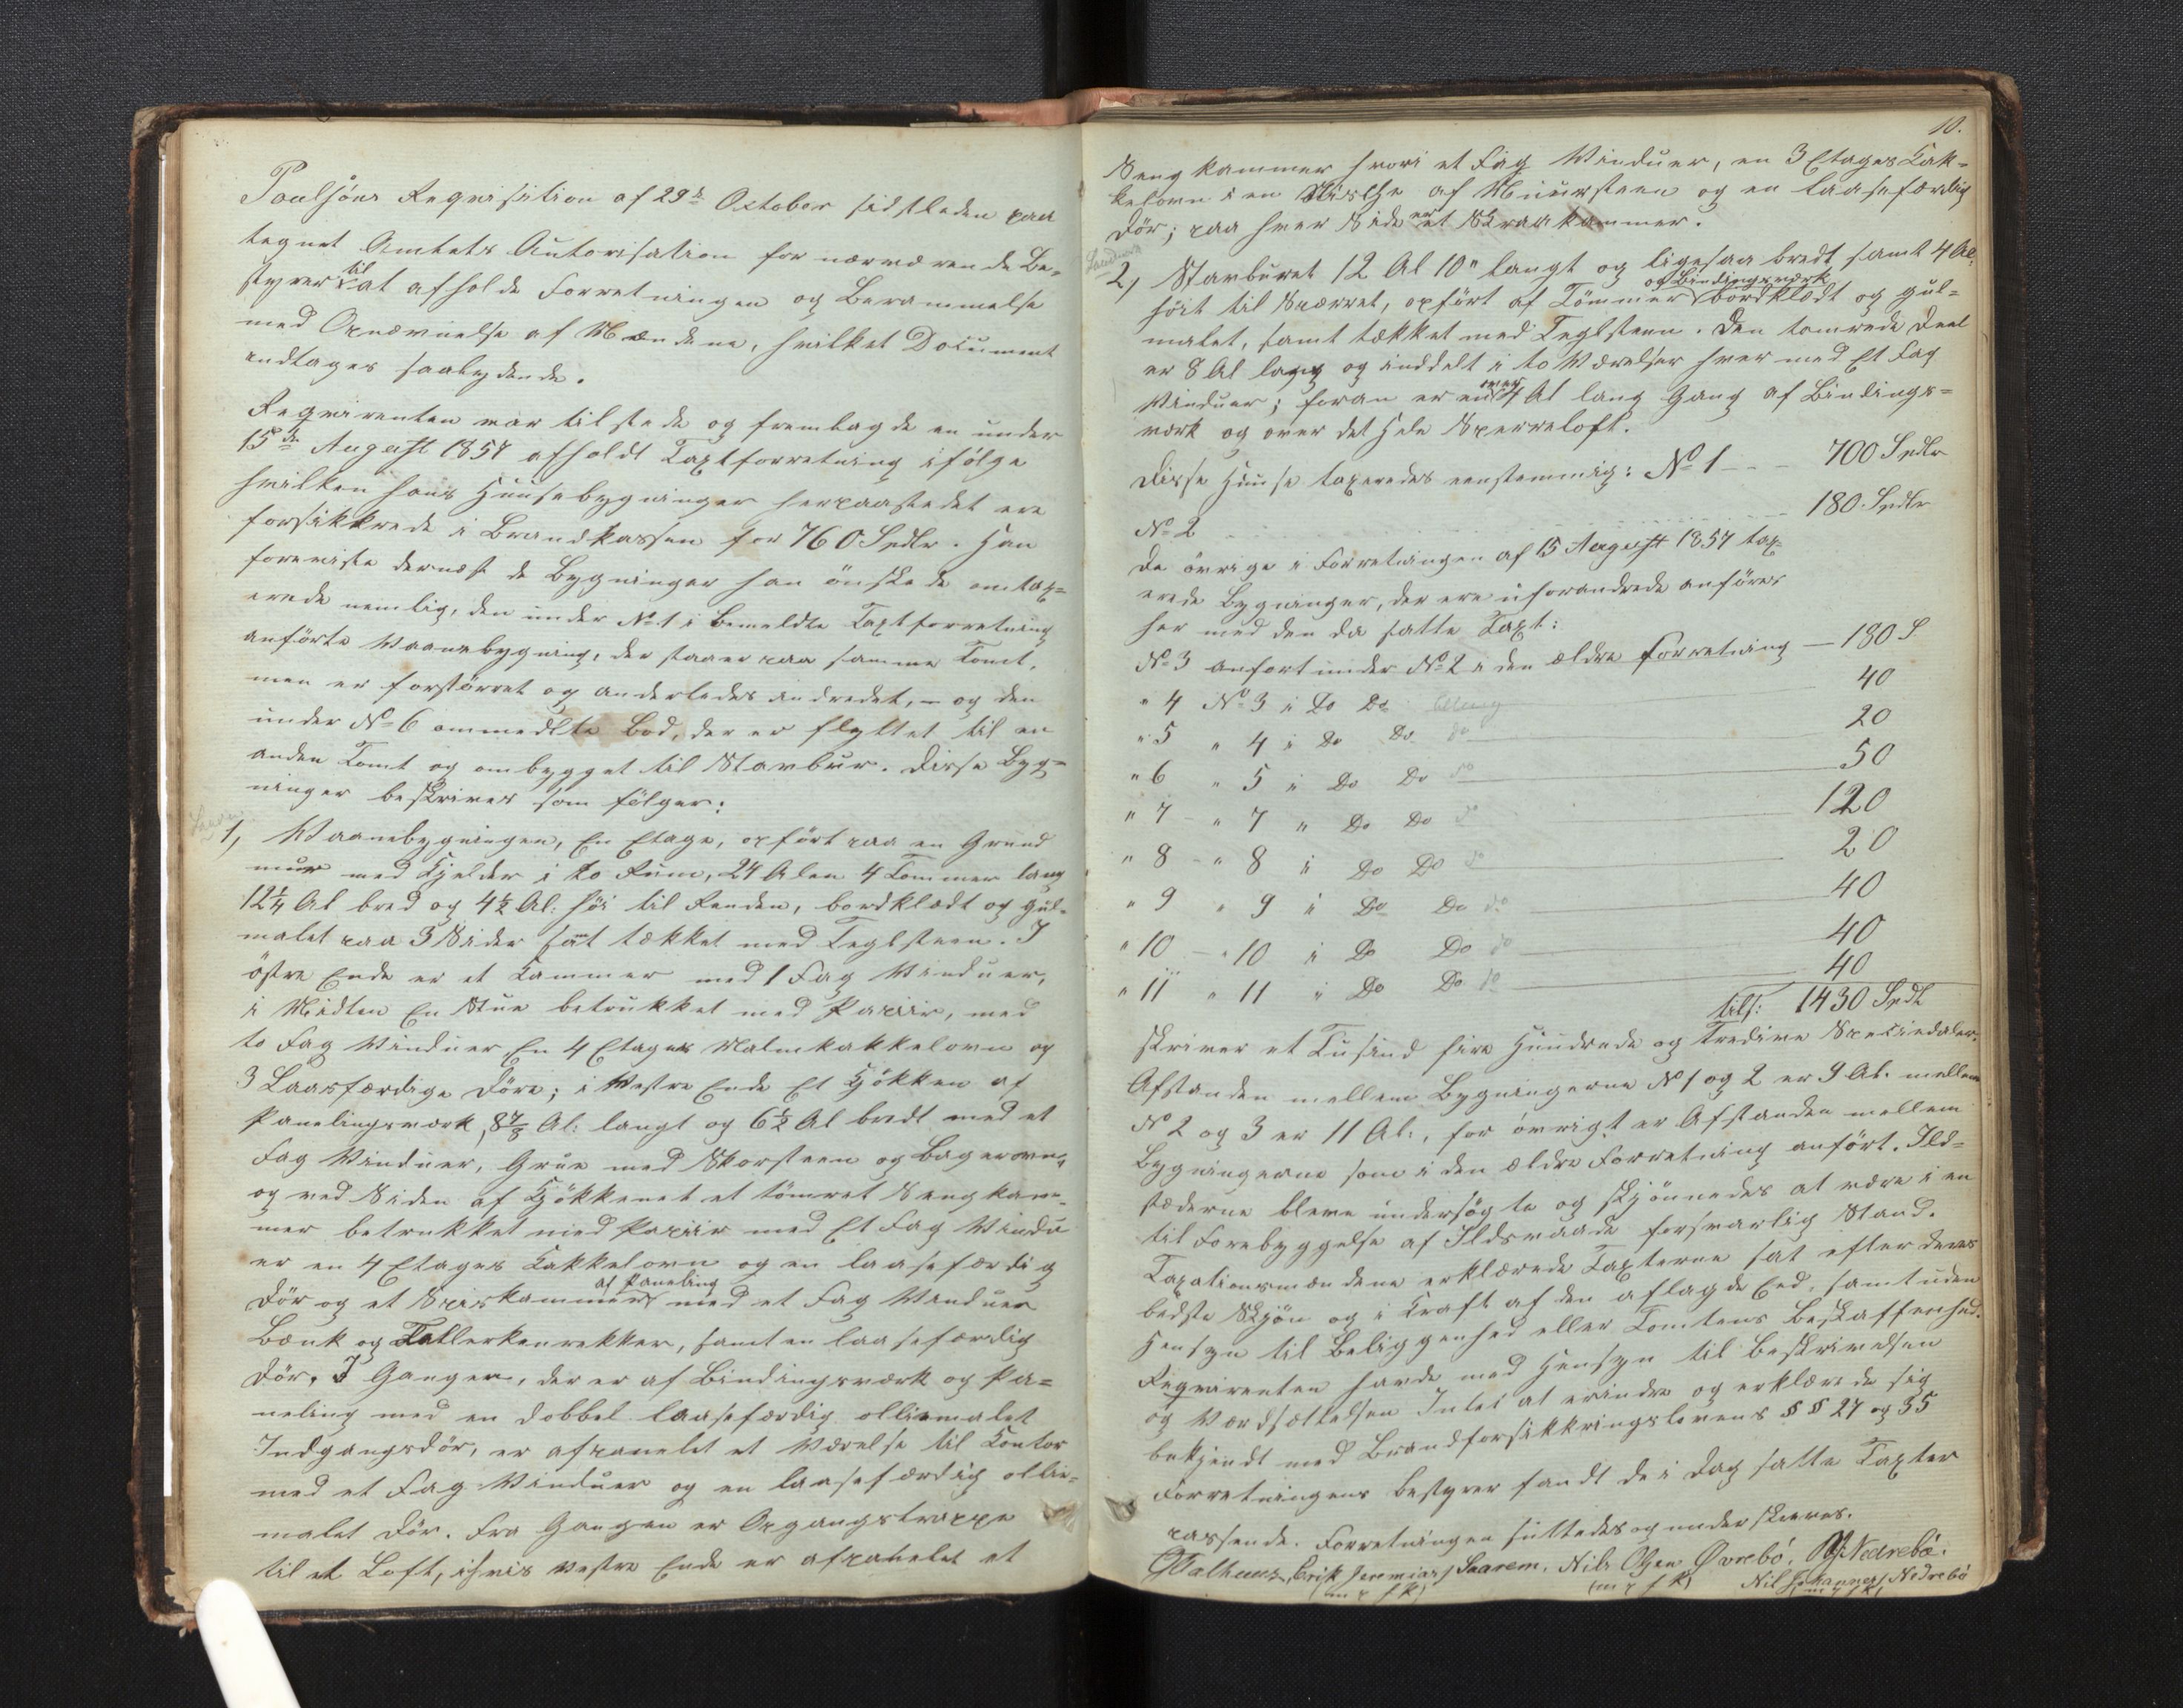 Poulsöns Reqvisition af 29de October sidstleden paa
tegnet Amtets Autorisation for nærværende Be-
styrer til at afholde Forretningen og Berammelse
med Opnævnelse af Mændene, hvilket Document
indtages saalydende.
Reqvirenten var tilstede og fremlagde en under
15de August 1857 afholdt Taxtforretning ifölge
hvilken hans Huusebygninger herpaastedet ere
forsikkrede i Brandkassen for 760 Spdlr. Han
foreviste dernæst de Bygninger han önskede omtax-
erede nemlig, den under No 1 i bemeldte Taxtforretning
anförte Vaanebygning, der staaer paa samme Tomt,
men er forstörret og anderledes indredet, – og den
under No 6 ommeldte Bod, der er flyttet til en
anden Tomt og ombygget til Stavbur. Disse Byg-
ninger beskrives som fölger:
1, Vaanebygningen, En Etage, opfört paa en Grund
muur med Kjelder i to Rum, 24 Alen 4 Tommer lang
12¼ Al bred og 4½ Al: höi til Renden, bordklædt og guul-
malet paa 3 Sider samt tækket med Teglsteen. I
östre Ende er et Kammer med 1 Fag Vinduer,
i Midten En Stue betrukket med Papiir, med
to Fag Vinduer En 4 Etages Malmkakkelovn og
3 Laasfærdige Döre; i Vestre Ende Et Kjökken af
Panelingsværk, 8⅞ Al: langt og 6½ Al bredt med et
Fag Vinduer, Grue med Skorsteen og Bagerovn,
og ved Siden af Kjökkenet et tömret Sengkam-
mer betrukket med Papiir med Et Fag Vindu
er en 4 Etages Kakkelovn og en laasefærdig
Dör og et Spiskammer af Paneling med et Fag Vinduer
Bænk og Tallerkenrekker, samt en laasefærdig
Dör. I Gangen, der er af Bindingsværk og Pa-
neling med en dobbel laasefærdig olliemalet
Indgangsdör, er afpanelet et Værelse til Kontor
med et Fag Vinduer og en laasefærdig ollie-
malet Dör. Fra Gangen er Opgangstrappe
til et Loft, i hvis vestre Ende er afpanelet et
10.
Sengkammer hvori et Fag Vinduer, en 3 Etages Kak-
kelovn i en Nische af Muursteen og en laasefærdig
Dör; paa hver Side er et Skraakammer.
2, Stavburet 12 Al 10" langt og ligesaa bredt samt 4 Al.
höit til Sperret, opfört af Tömmer og Bindingsværk bordklædt og guul-
malet, samt tækket med Teglsteen. Den tömrede Deel
er 8 Al lang og inddelt i to Værelser hver med Et Fag
Vinduer; foran er en over 4 Al lang Gang af Bindings-
værk og over det Hele Sperreloft.
Disse Huuse taxeredes eenstemmig: No 1 - - - 700 Spdlr
No 2 - - - 180 Spdlr
De övrige i Forretningen af 15 August 1857 tax-
erede Bygninger, der ere uforandrede anföres
her med den da satte Taxt:
No 3 anfört under No 2 i den ældre Forretning — 180 S
" 4 No 3 i Do Do 40
" 5 " 4 i Do Do do 20
" 6 " 5 i Do Do do 50
" 7 - " 7 " Do Do do 120
" 8 - " 8 i Do Do do 20
" 9 " 9 i Do Do do 40
" 10 - " 10 i Do Do do 40
" 11 " 11 i Do Do do 40
tils: 1430 Spdl
skriver et Tusind fire Hundrede og Tredive Speciedaler.
Afstanden mellem Bygningerne No 1 og 2 er 9 Al. mellem
No 2 og 3 er 11 Al:, for övrigt er Afstanden mellem
Bygningerne som i den ældre Forretning anfört. Ild-
stæderne bleve undersögte og skjönnedes at være i en
til Forebyggelse af Ildsvaade forsvarlig Stand.
Taxationsmændene erklærede Taxterne sat efter deres
bedste Skjön og i Kraft af den aflagde Eed, samt uden
Hensyn til Beliggenhed eller Tomtens Beskaffenhed.
Reqvirenten havde med Hensyn til Beskrivelsen
og Værdsættelsen Intet at erindre og erklærede sig
bekjendt med Brandforsikkringslovens §§ 27 og 35
Forretningens Bestyrer fandt de i Dag satte Taxter
passende. Forretningen sluttedes og underskreves.
Erik Jeremiass Saarem. Nils Olsen Övrebö. Nedrebö.
(m p f k) (m p f k) Nil Johannes Nedrebö
(m p f k)